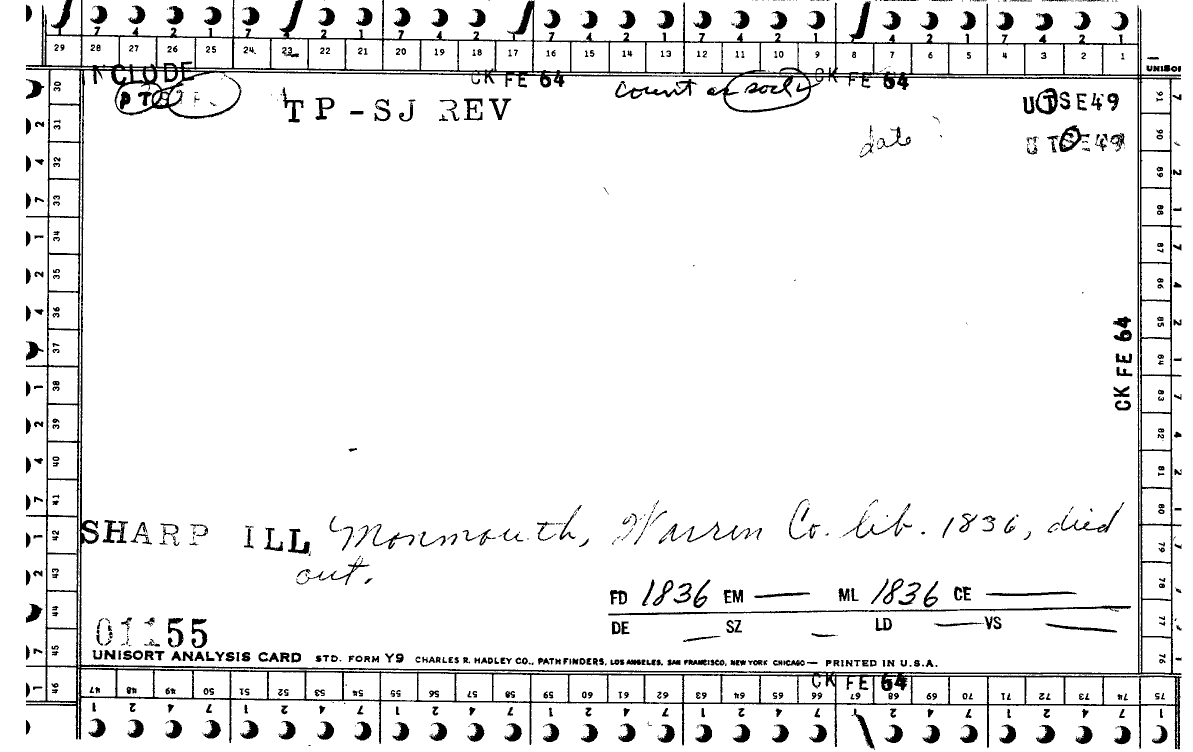 7 4 2 1 7 4 2 1 7 4 2 1 7 4 2 1 7 4 2 1 7 4 2 1 7 4 2 1
29 28 27 26 25 24 23 22 21 20 19 18 17 16 15 14 13 12 11 10 9 8 7 6 5 4 3 2 1
UNISOR
NCLUDE CK FE 64 CK FE 64
count as socl
TP-SJ REV
UTSE49
date ?
UTSE49
30 31 32 33 34 35 36 37 38 39 40 41 42 43 44 45 46
91 90 89 88 87 86 85 84 83 82 81 80 79 78 77 76
CK FE 64
SHARP ILL Monmouth, Warren Co. lib. 1836, died
out.
FD 1836 EM — ML 1836 CE —
DE — SZ — LD — VS —
01155
UNISORT ANALYSIS CARD STD. FORM Y9 CHARLES R. HADLEY CO., PATHFINDERS, LOS ANGELES, SAN FRANCISCO, NEW YORK CHICAGO — PRINTED IN U.S.A.
CK FE 64
47 48 49 50 51 52 53 54 55 56 57 58 59 60 61 62 63 64 65 66 67 68 69 70 71 72 73 74 75
1 2 4 7 1 2 4 7 1 2 4 7 1 2 4 7 1 2 4 7 1 2 4 7 1 2 4 7 1